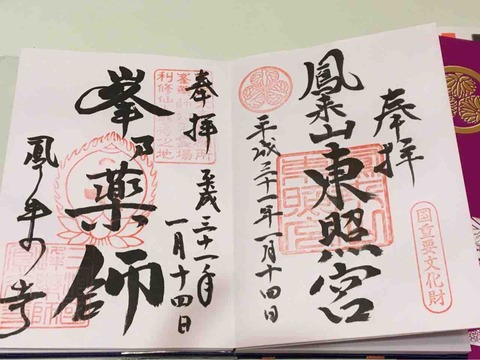 奉拝
国重要文化財
鳳来山東照宮
平成三十一年一月十四日
奉拝
平成三十一年
一月十四日
峯乃薬師
鳳来寺